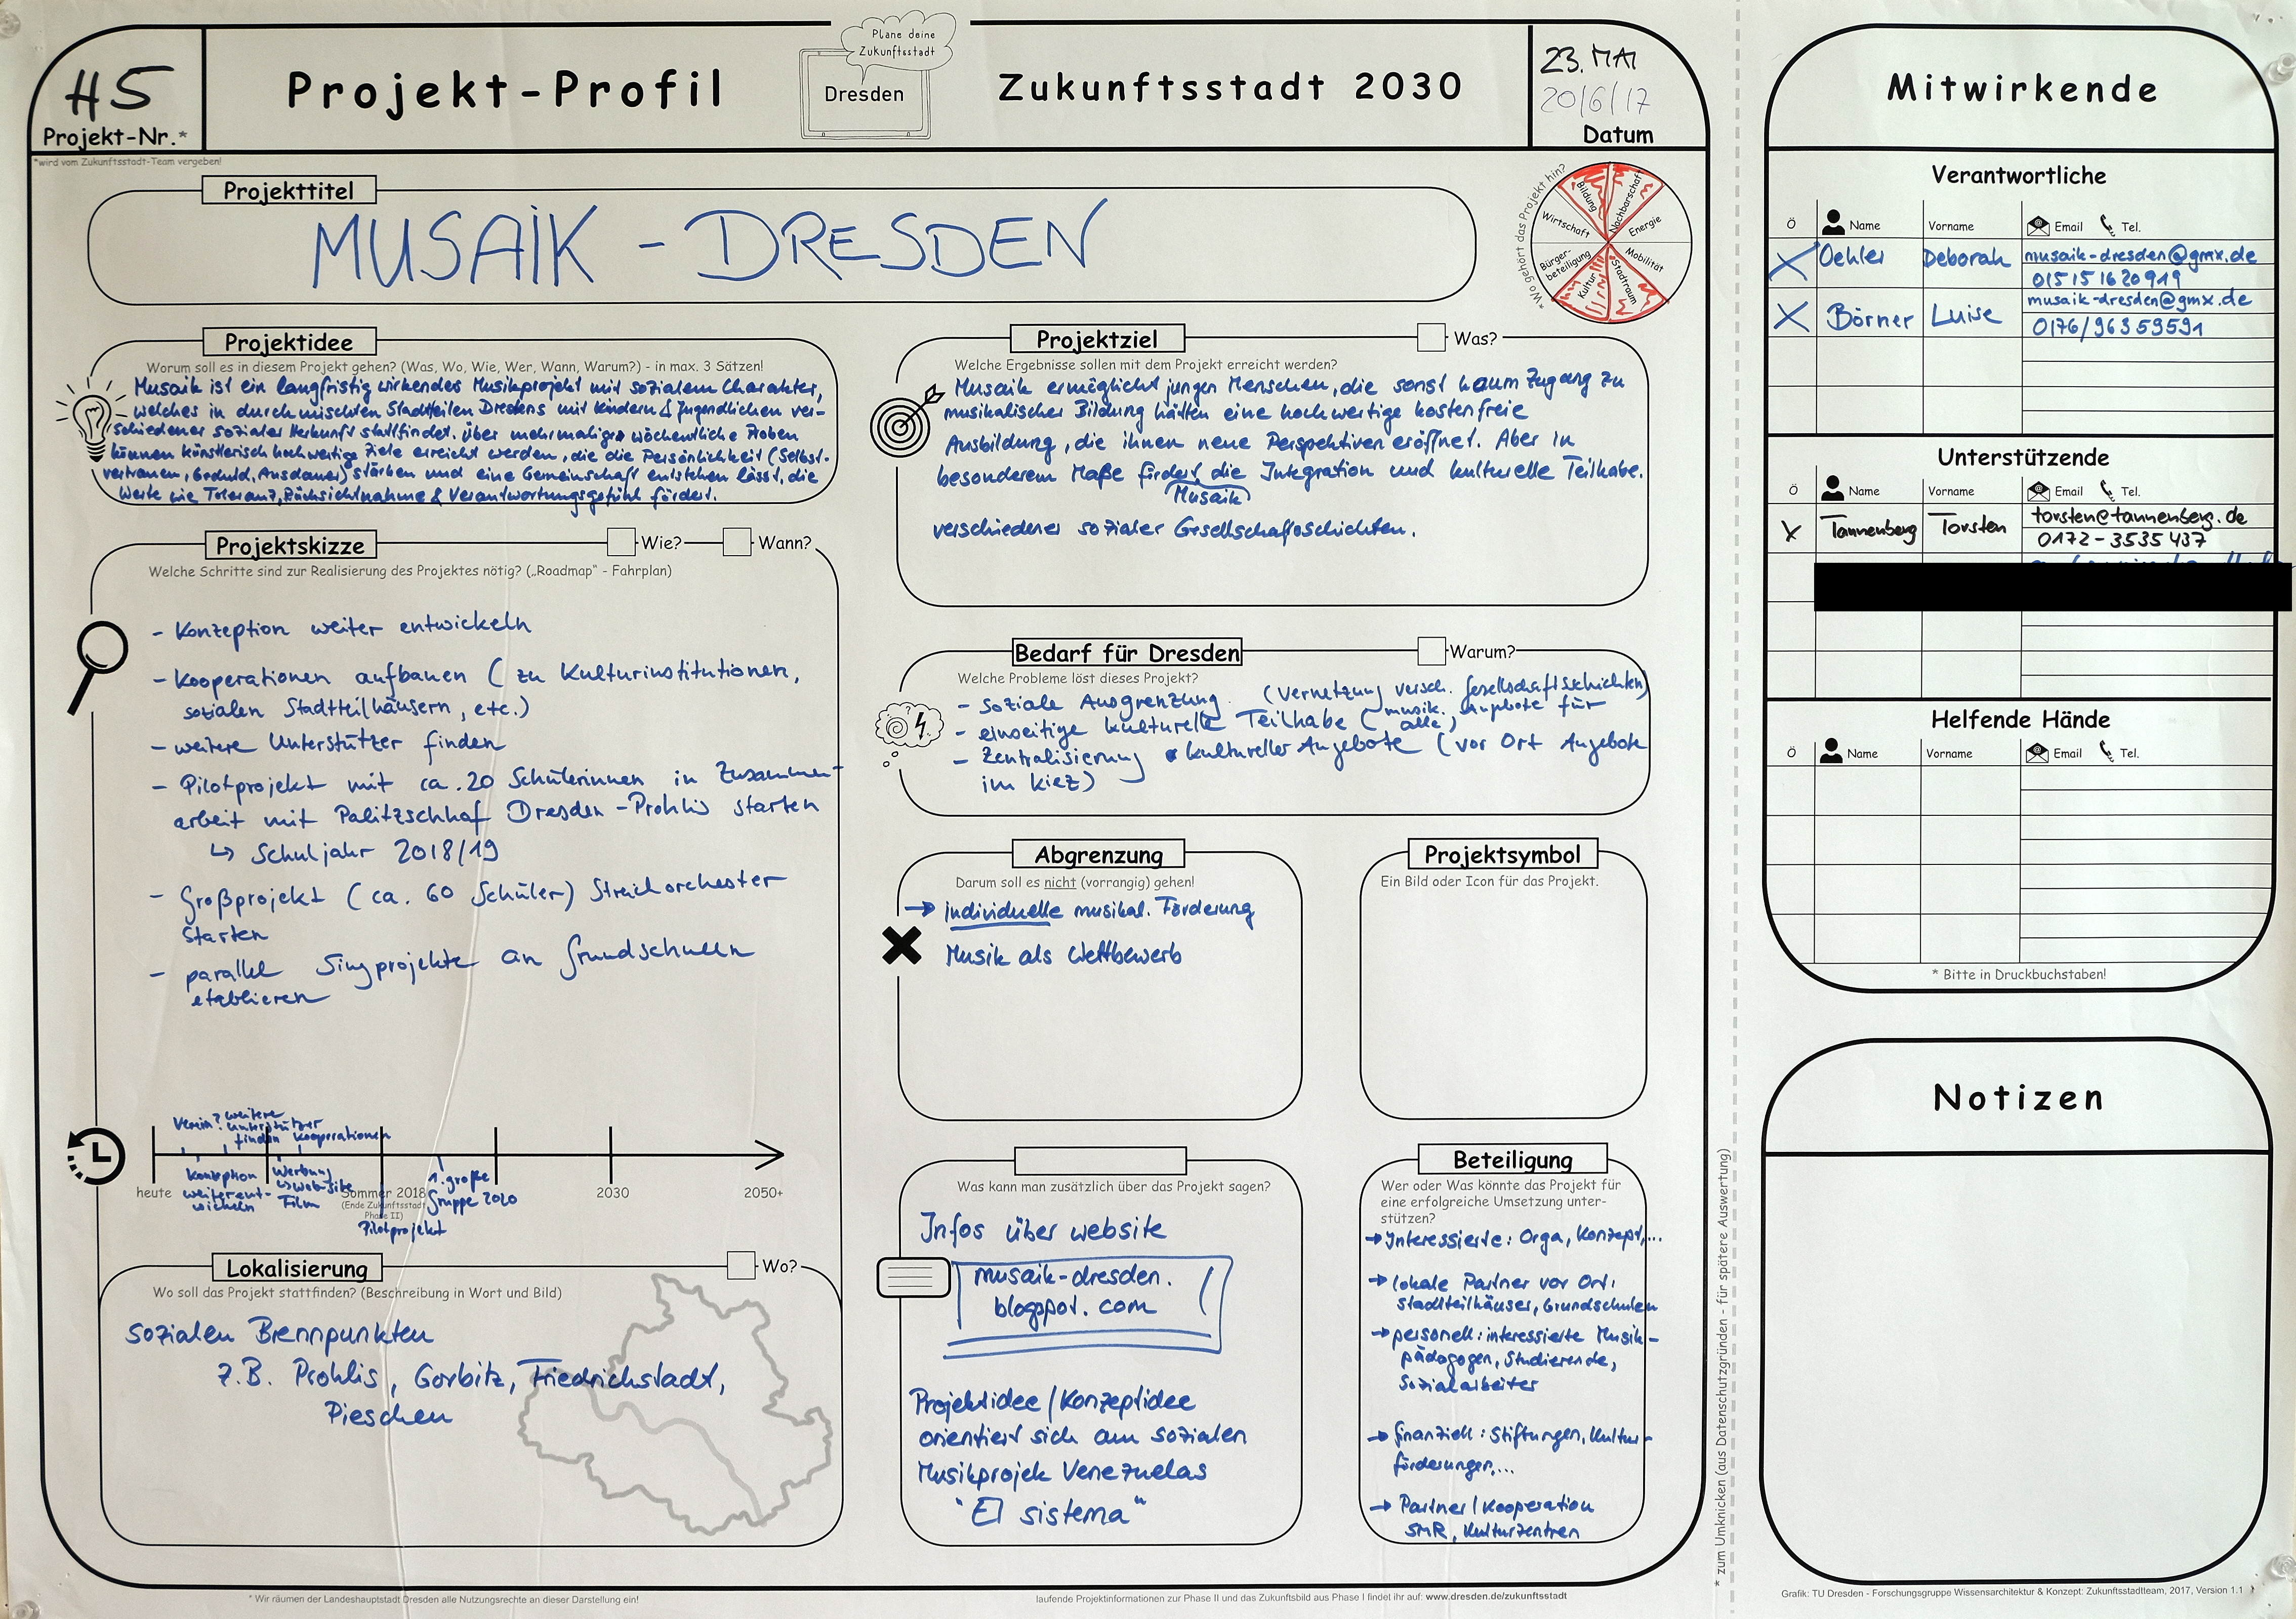 H5
Projekt-Nr.*
*wird vom Zukunftsstadt-Team vergeben!
Projekt-Profil
Plane deine
Zukunftsstadt
Dresden
Zukunftsstadt 2030
23. MAI
2016/17
Datum
Projekttitel
MUSAIK - DRESDEN
*Wo gehört das Projekt hin?
Bildung
Nachbarschaft
Energie
Mobilität
Stadtraum
Kultur
Bürger-
beteiligung
Wirtschaft
Projektidee
Worum soll es in diesem Projekt gehen? (Was, Wo, Wie, Wer, Wann, Warum?) - in max. 3 Sätzen!
Musaik ist ein langfristig wirkendes Musikprojekt mit sozialem Charakter,
welches in durchmischten Stadtteilen Dresdens mit Kindern & Jugendlichen ver-
schiedener sozialer Herkunft stattfindet. Über mehrmalige wöchentliche Proben
können künstlerisch hochwertige Ziele erreicht werden, die die Persönlichkeit (Selbst-
vertrauen, Geduld, Ausdauer) stärken und eine Gemeinschaft entstehen lässt, die
Werte wie Toleranz, Rücksichtnahme & Verantwortungsgefühl fördert.
Projektziel
Was?
Welche Ergebnisse sollen mit dem Projekt erreicht werden?
Musaik ermöglicht jungen Menschen, die sonst kaum Zugang zu
musikalischer Bildung hätten eine hochwertige kostenfreie
Ausbildung, die ihnen neue Perspektiven eröffnet. Aber in
besonderem Maße fördert die Integration und kulturelle Teilhabe.
Musaik
verschiedener sozialer Gesellschaftsschichten.
Projektskizze
Wie?
Wann?
Welche Schritte sind zur Realisierung des Projektes nötig? („Roadmap" - Fahrplan)
- Konzeption weiter entwickeln
- Kooperationen aufbauen (zu Kulturinstitutionen,
sozialen Stadtteilhäusern, etc.)
- weitere Unterstützer finden
- Pilotprojekt mit ca. 20 Schülerinnen in Zusammen-
arbeit mit Palitzschhof Dresden-Prohlis starten
↳ Schuljahr 2018/19
- Großprojekt (ca. 60 Schüler) Streichorchester
starten
- parallel Singprojekte an Grundschulen
etablieren
Verein?
weitere
Unterstützer
finden
Kooperationen
Konzeption
weiterent-
wickeln
Werbung
↳ Website
Film
1. große
Gruppe 2020
heute
Sommer 2018
(Ende Zukunftsstadt
Phase II)
Pilotprojekt
2030
2050+
Bedarf für Dresden
Warum?
Welche Probleme löst dieses Projekt?
- soziale Ausgrenzung (Vernetzung versch. Gesellschaftsschichten)
- einseitige kulturelle Teilhabe (musik. Angebote für
alle)
- Zentralisierung kultureller Angebote (vor Ort Angebote
im Kiez)
Abgrenzung
Darum soll es nicht (vorrangig) gehen!
→ individuelle musikal. Förderung
Musik als Wettbewerb
Projektsymbol
Ein Bild oder Icon für das Projekt.
Lokalisierung
Wo?
Wo soll das Projekt stattfinden? (Beschreibung in Wort und Bild)
sozialen Brennpunkten
z.B. Prohlis, Gorbitz, Friedrichstadt,
Pieschen
Was kann man zusätzlich über das Projekt sagen?
Infos über website
musaik-dresden.
blogspot.com
Projektidee/Konzeptidee
orientiert sich am sozialen
Musikprojek Venezuelas
"El sistema"
Beteiligung
Wer oder Was könnte das Projekt für
eine erfolgreiche Umsetzung unter-
stützen?
→ Interessierte: Orga, Konzept,...
→ lokale Partner vor Ort:
Stadtteilhäuser, Grundschulen
→ personell: interessierte Musik-
pädagogen, Studierende,
Sozialarbeiter
→ finanziell: Stiftungen, Kultur-
förderungen,...
→ Partner/Kooperation
SMR, Kulturzentren
* Wir räumen der Landeshauptstadt Dresden alle Nutzungsrechte an dieser Darstellung ein!
laufende Projektinformationen zur Phase II und das Zukunftsbild aus Phase I findet ihr auf: www.dresden.de/zukunftsstadt
* zum Umknicken (aus Datenschutzgründen - für spätere Auswertung)
Mitwirkende
Verantwortliche
Ö Name Vorname Email Tel.
X Oehler Deborah musaik-dresden@gmx.de
01515 1620919
X Börner Luise musaik-dresden@gmx.de
0176/96359591
Unterstützende
Ö Name Vorname Email Tel.
X Tannenberg Torsten torsten@tannenberg.de
0172-3535437
Helfende Hände
Ö Name Vorname Email Tel.
* Bitte in Druckbuchstaben!
Notizen
Grafik: TU Dresden - Forschungsgruppe Wissensarchitektur & Konzept: Zukunftsstadtteam, 2017, Version 1.1